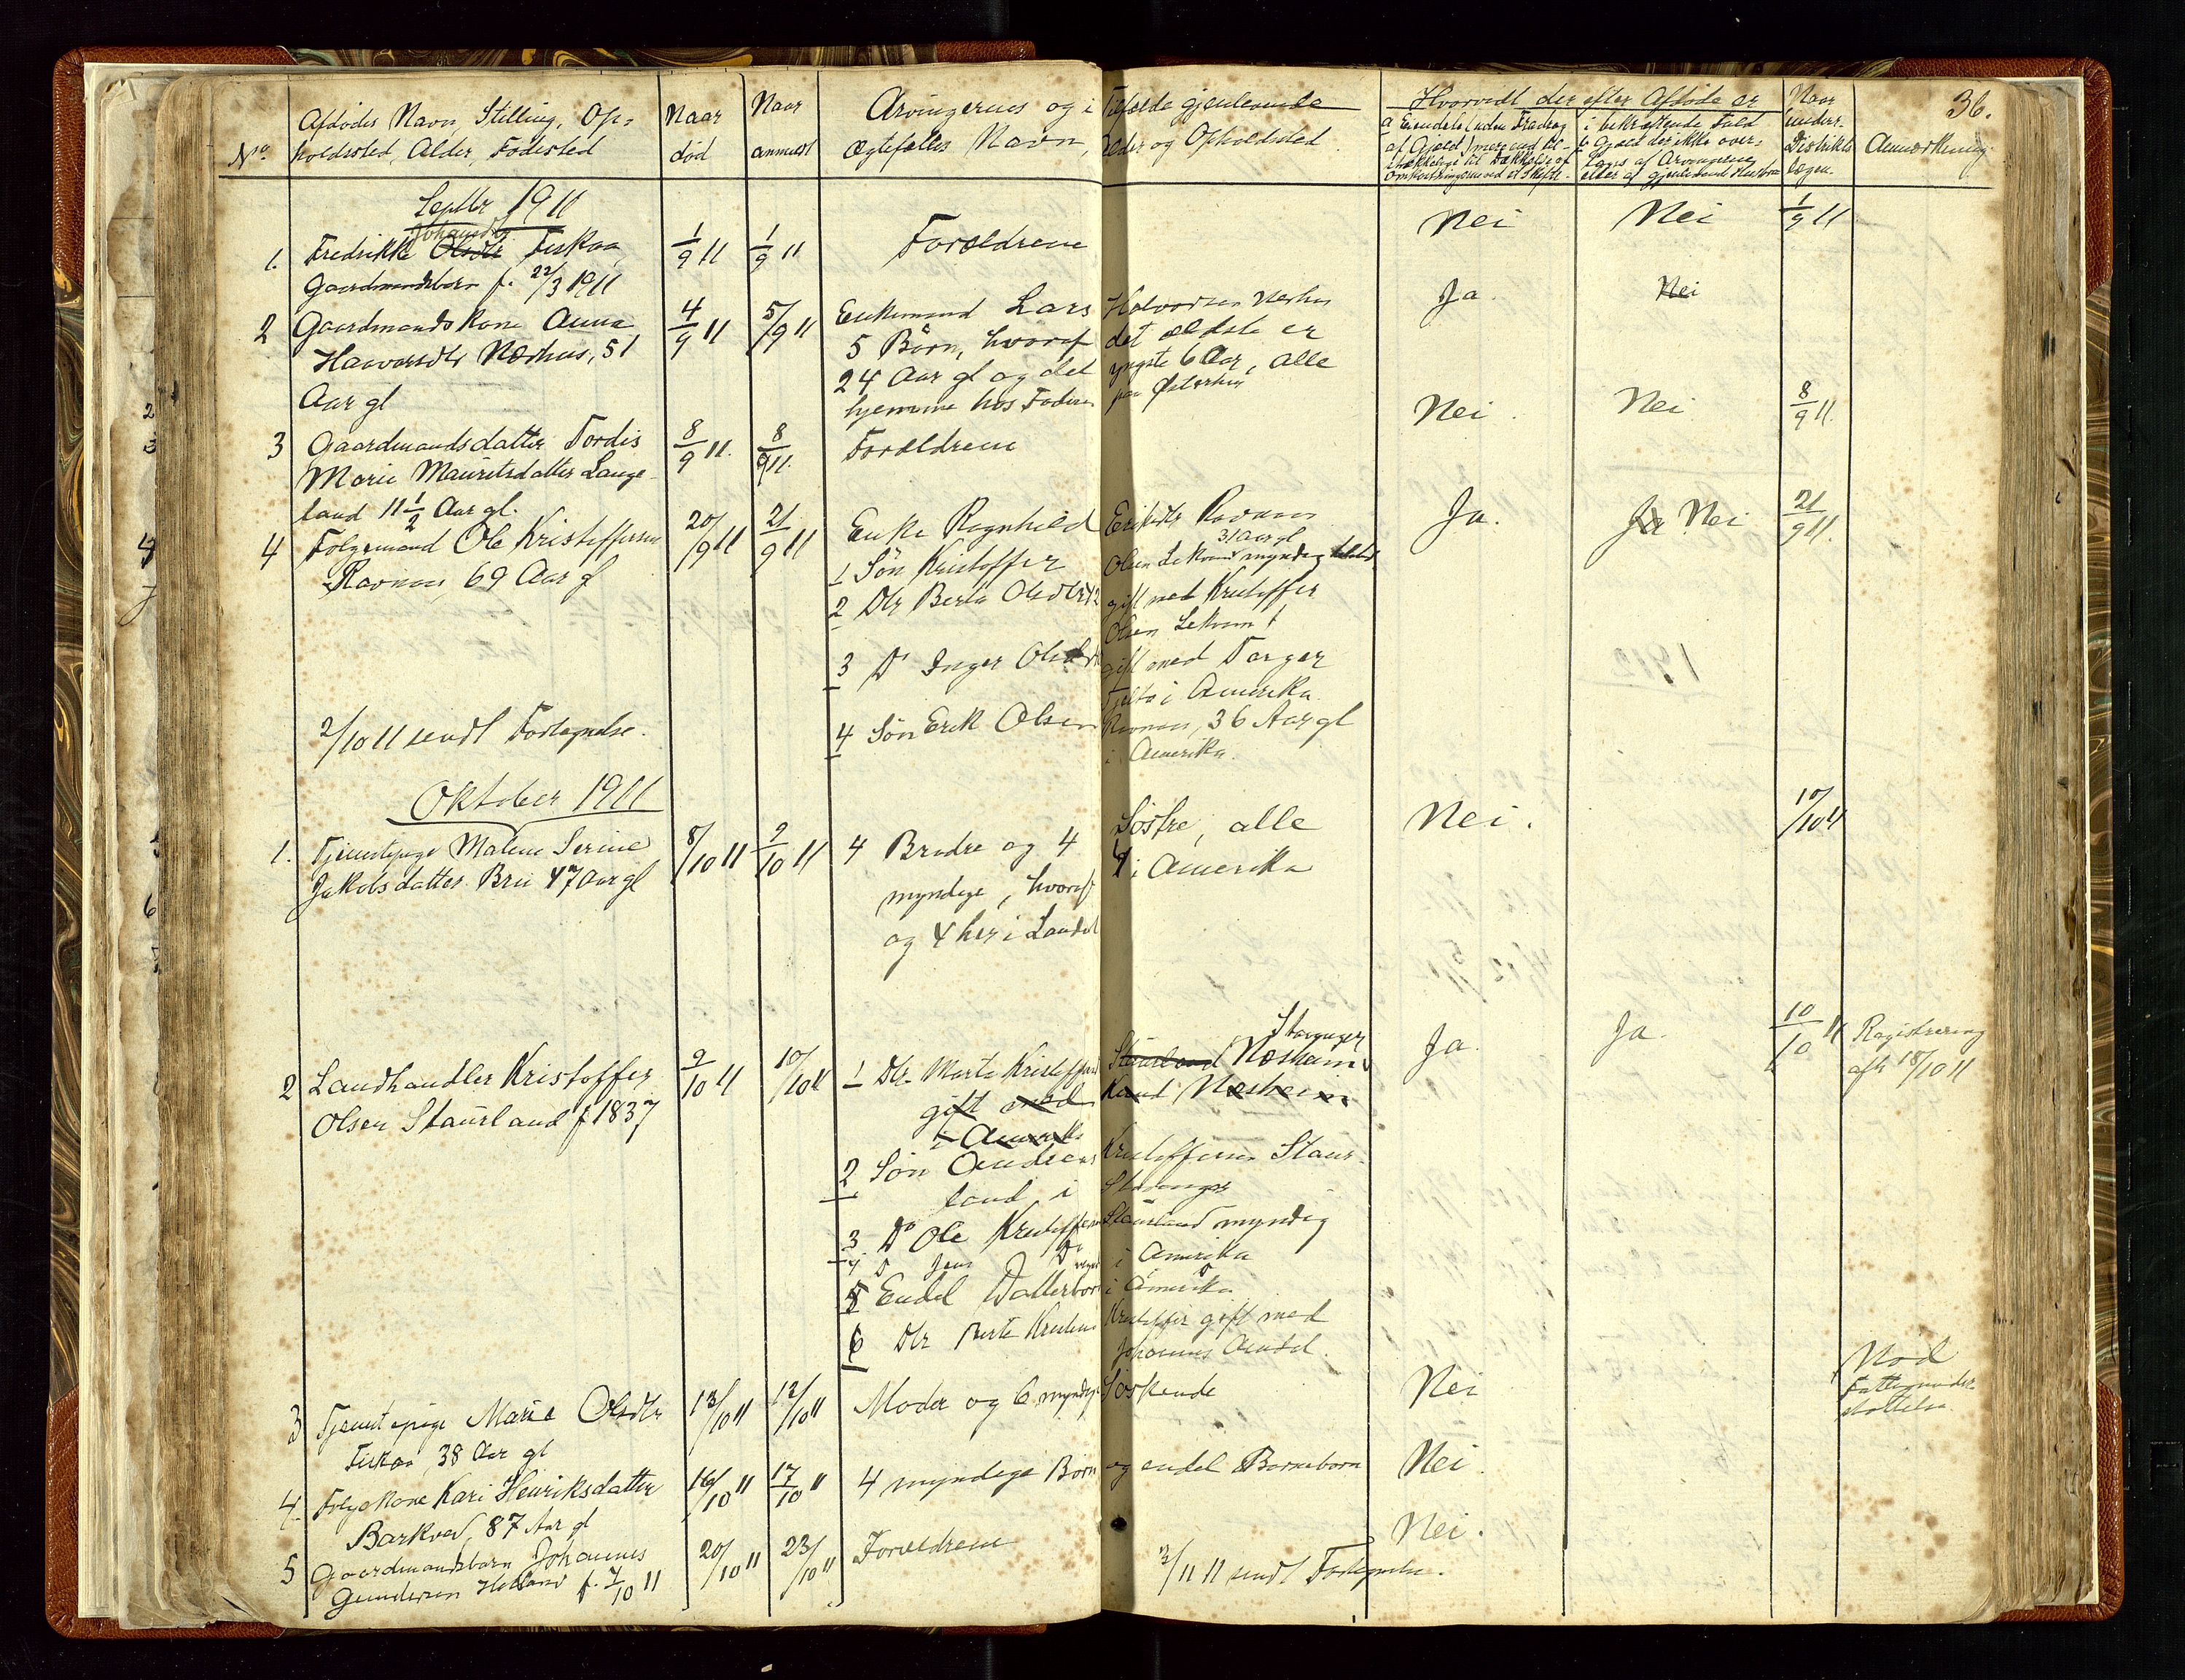 36.
No
Afdødes Navn, Stilling, Op-
holdssted, Alder, Fødested
Naar
død
Naar
anmeldt
Arvingernes og i Tilfælde gjenlevende
Ægtefælles Navn, Alder og Opholdssted
Hvorvidt der efter Afdøde er
a Eiendele (uden Fradrag
af Gjæld) mere end til-
strækkelige til Dækkelse af
Omkostningerne ved et Skifte.
i bekræftende Fald
b Gjæld der ikke over-
tages af Arvingerne
eller af gjenlevende
Naar
under.
Distrikts
lægen.
Anmærkning
Septbr 1911
Johansdtr
1. Fredrikke Olsdtr Fiskaa
1/9 11 1/9 11 Forældrene Nei Nei 1/9 11
Gaardmandsbarn f. 22/3 1911
2 Gaardmandskone Anna 4/9 11 5/9 11 Enkemand Lars Halvorsen Nærhus Ja. Nei
Haavarsdtr Nærhus, 51 5 Børn, hvoraf det ældste er
Aar gl 24 Aar gl og det yngste 6 Aar, alle
hjemme hos Faderen paa Østerhus
3 Gaardmandsdatter Tordis 8/9 11. 8/9 11. Forældrene Nei. Nei 8/9 11.
Marie Mauritsdatter Lange-
land 11 1/2 Aar gl.
4 Folgemand Ole Kristoffersen 20/9 11 21/9 11 Enke Ragnhild Eriksdtr Ravnaas Ja. Ja Nei 21/9 11.
Ravnaas, 69 Aar gl
31 Aar gl
1 Søn Kristoffer Olsen Lekvam myndig
2 Dtr Berta Olsdtr gift med Kristoffer
Olsen Lekvam †
3 Do Inger Olsdtr gift med Torger
i Amerika.
2/10 11 sendt Fortegnelse. 4 Søn Erik Olsen Ravnaas, 36 Aar gl
i Amerika.
Oktober 1911
1. Tjenestepige Malene Serine 8/10 11 9/10 11 4 Brødre og 4 Søstre, alle Nei. 10/10 11
Jakobsdatter Bru 47 Aar gl myndige, hvoraf 4 i Amerika
og 4 her i Landet
Stavanger
2 Landhandler Kristoffer 9/10 11 10/10 11 1 Dtr. Marta Kristoffersd Staurland Næsheim Ja. Ja. 10/10 11 Registrering
Olsen Staurland f 1837 gift med Knud Næsheim afh 18/10 11
i Amerika
2 Søn Andreas Kristoffersen Staur-
land i Stavanger
3 Do Ole Kristoffersen Staurland myndig
4 D Jens Do i Amerika
5 Endel Datterbørn i Amerika
6 Dtr Berte Kristine Kristoffer gift med
Johannes Austdal.
3 Tjenestepige Marie Olsdtr 12/10 11 12/10 11 Moder og 6 myndige Søskende Nei Nød
Fiskaa, 38 Aar gl Fattigunder-
støttelse
4 Folgekone Kari Henriksdatter 16/10 11 17/10 11 4 myndige Børn og endel Børnebørn Nei.
Barkved, 87 Aar gl
5 Gaardmandsbarn Johannes 20/10 11 23/10 11 Forældrene Nei.
Gundersen Helland f. 7/10 11 2/11 11 sendt Fortegnelse.